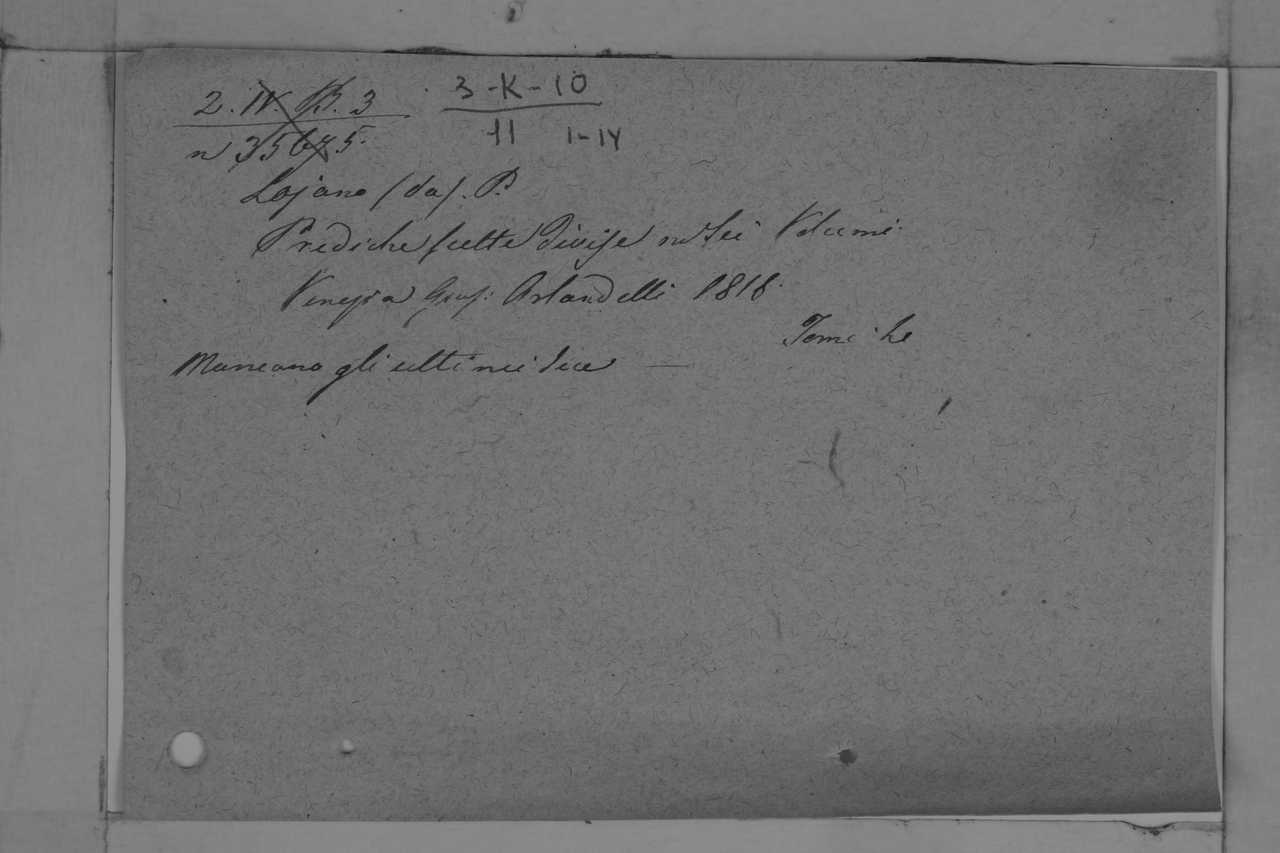 2. IV. B. 3
n 35675.
3-K-10
11 1-14
Lojano (da). P.
Prediche scelte divise in Sei Volumi
Venezia Gius: Orlandelli 1818.
Tomi
Mancano gli ultimi due —